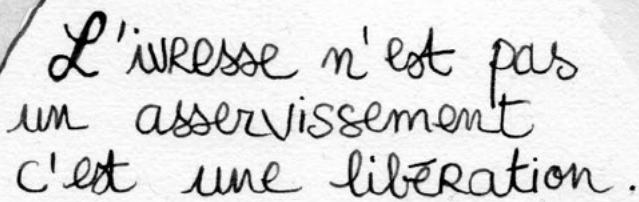 L'ivresse n'est pas
un asservissement
c'est une libération.